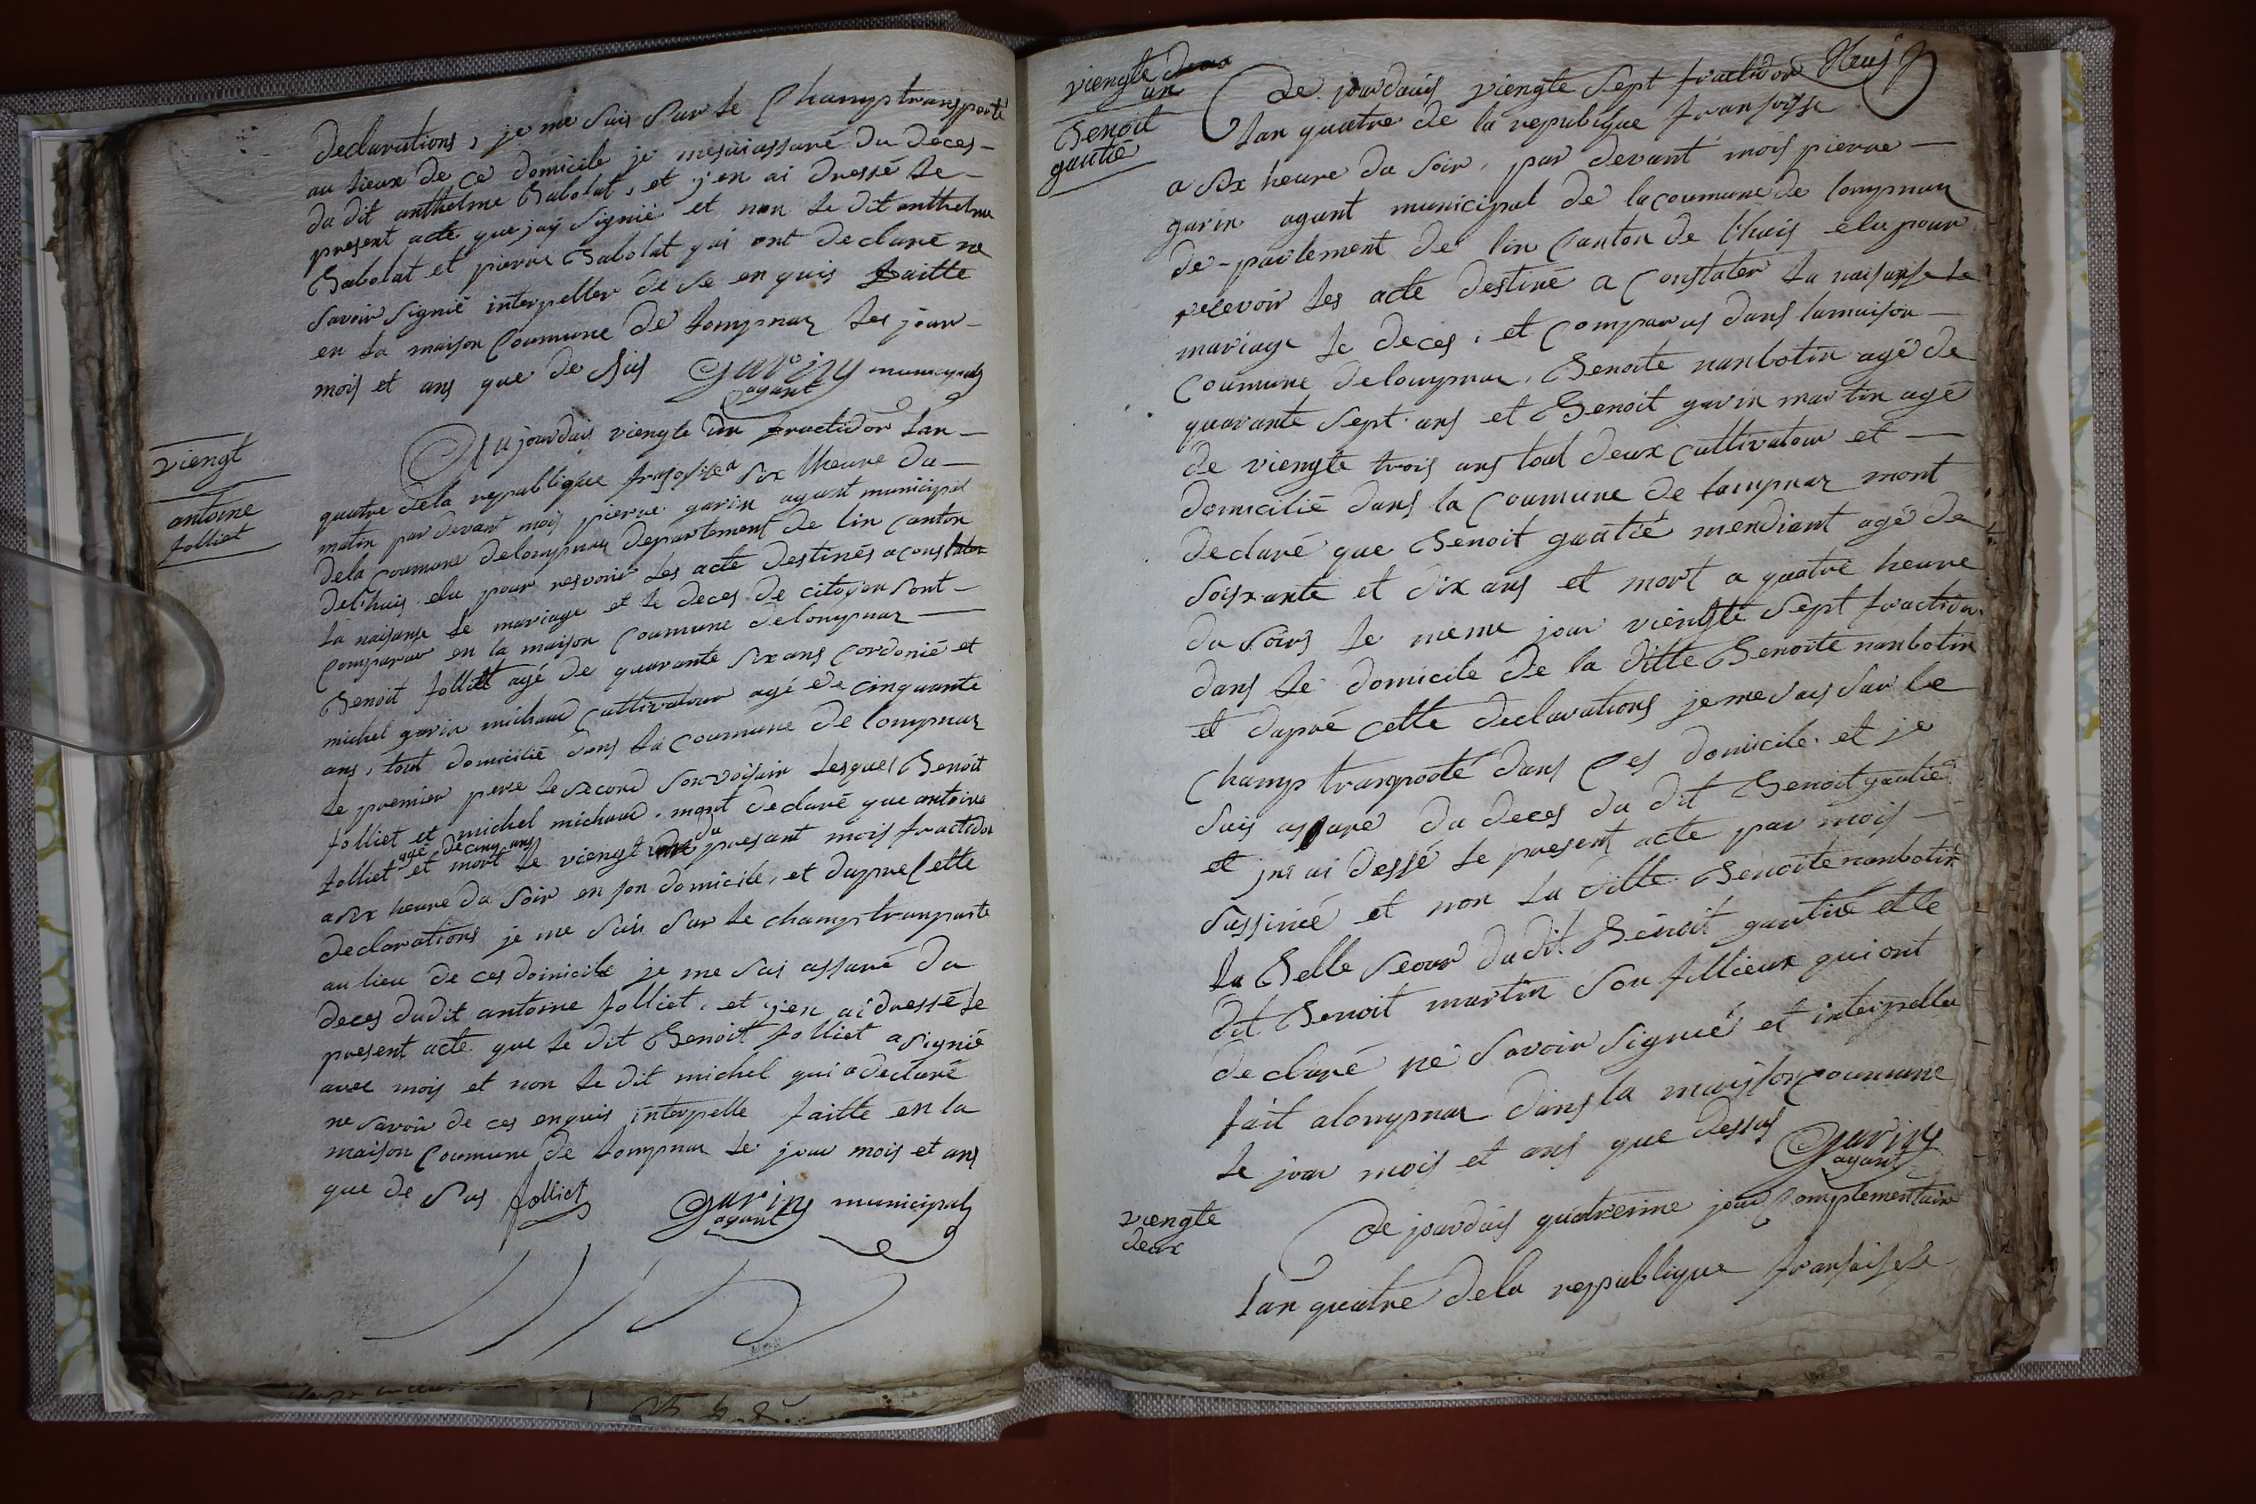 declarations, je me suis sur le Champ transporté
au lieux de ce domicile je mesuiassuré du deces
du dit anthelme Babolat, et j'en ai dressé le
present acte que jay signié et non le dit anthelme
Babolat et pierre Babolat qui ont declaré ne
savoir signié interpeller de se enquis faitte
en la maison Coumune de lompnaz les jour
mois et ans que de sus Garin agant municipal
viengt
antoine
Jolliet
Aujourduis viengte un fructidor lan
quatre dela republique fransoise a six lheure du
matin par devant mois pierre garin agant municipal
dela Coumune delompnaz departement de lin Canton
del'huis elu pour resevoir les acte destinés a constater
la naisanse le mariage et le deces de citoyen sont
Comparue en la maison Coumune delompnaz
Benoit Jolliet agé de quarante six ans Cordonié et
michel garin michaud Cultivateur agé de cinquante
ans, tout domicilié dans la Coumune de lompnaz
le premier pere le second son voisin lesquel Benoit
Jolliet et michel michaud, mont declaré que antoine
Jolliet agé de cinq ans et mort le viengt du presant mois fructidor
a six heure du soir en son domicile, et dapre Cette
declarations je me suis sur le champ tranporte
au lieu de ces domicile je me suis assuré du
deces dudit antoine Jolliet, et j'en ai dressé le
present acte que le dit Benoit Jolliet a signié
avec mois et non le dit michel qui a declaré
ne savoir de ces enquis interpelle faitte en la
maison Coumune de lompnaz le jour mois et ans
que de sus Jolliet Garin agant municipal
viengte deux
un
Benoit
gautié
Ce jourduis viengte sept fructidor
lan quatre de la republique fransoise
a six heure du soir, par devant mois pierre
garin agant municipal de lacoumune de lompnaz
de-partement de lin Canton de l'huis elu pour
recevoir les acte destiné a Constater la naisansse le
mariage le deces, et Comparus dans lamaison
Coumune delompnaz, Benoite nanbotin agé de
quarante sept ans et Benoit garin martin agé
de viengte trois ans tout deux Cultivateur et
domicilié dans la Coumune de lompnaz mont
declaré que Benoit gautié mendiant agé de
soisxante et dix ans et mort a quatre heure
du soirs le meme jour viengte sept fructidor
dans le domicile de la ditte Benoite nanbotin
et dapré cette declarations je me suis sur le
Champ tranporté dans Ces domicile et je
suis assuré du deces du dit Benoit gautié
et jen ai dessé le present acte par mois
sussinié et non la ditte Benoite nanbotin
la Belle seour dudit Benoit gautié et le
dit Benoit martin son fillieux qui ont
declaré ne savoir signié et interpelle
fait a lompnaz dans la maison coumune
le jour mois et ans que dessus Garin
agant
viengte
deux
Ce jourduis quatrieme jour Complementaire
lan quatre dela republique fransoisse